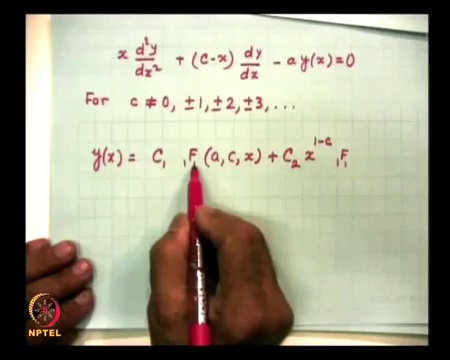 x d²y/dx² + (c-x) dy/dx - a y(x) = 0
For c ≠ 0, ±1, ±2, ±3, ...
y(x) = C₁ ₁F (a, c, x) + C₂ x^(1-c) ₁F₁
NPTEL